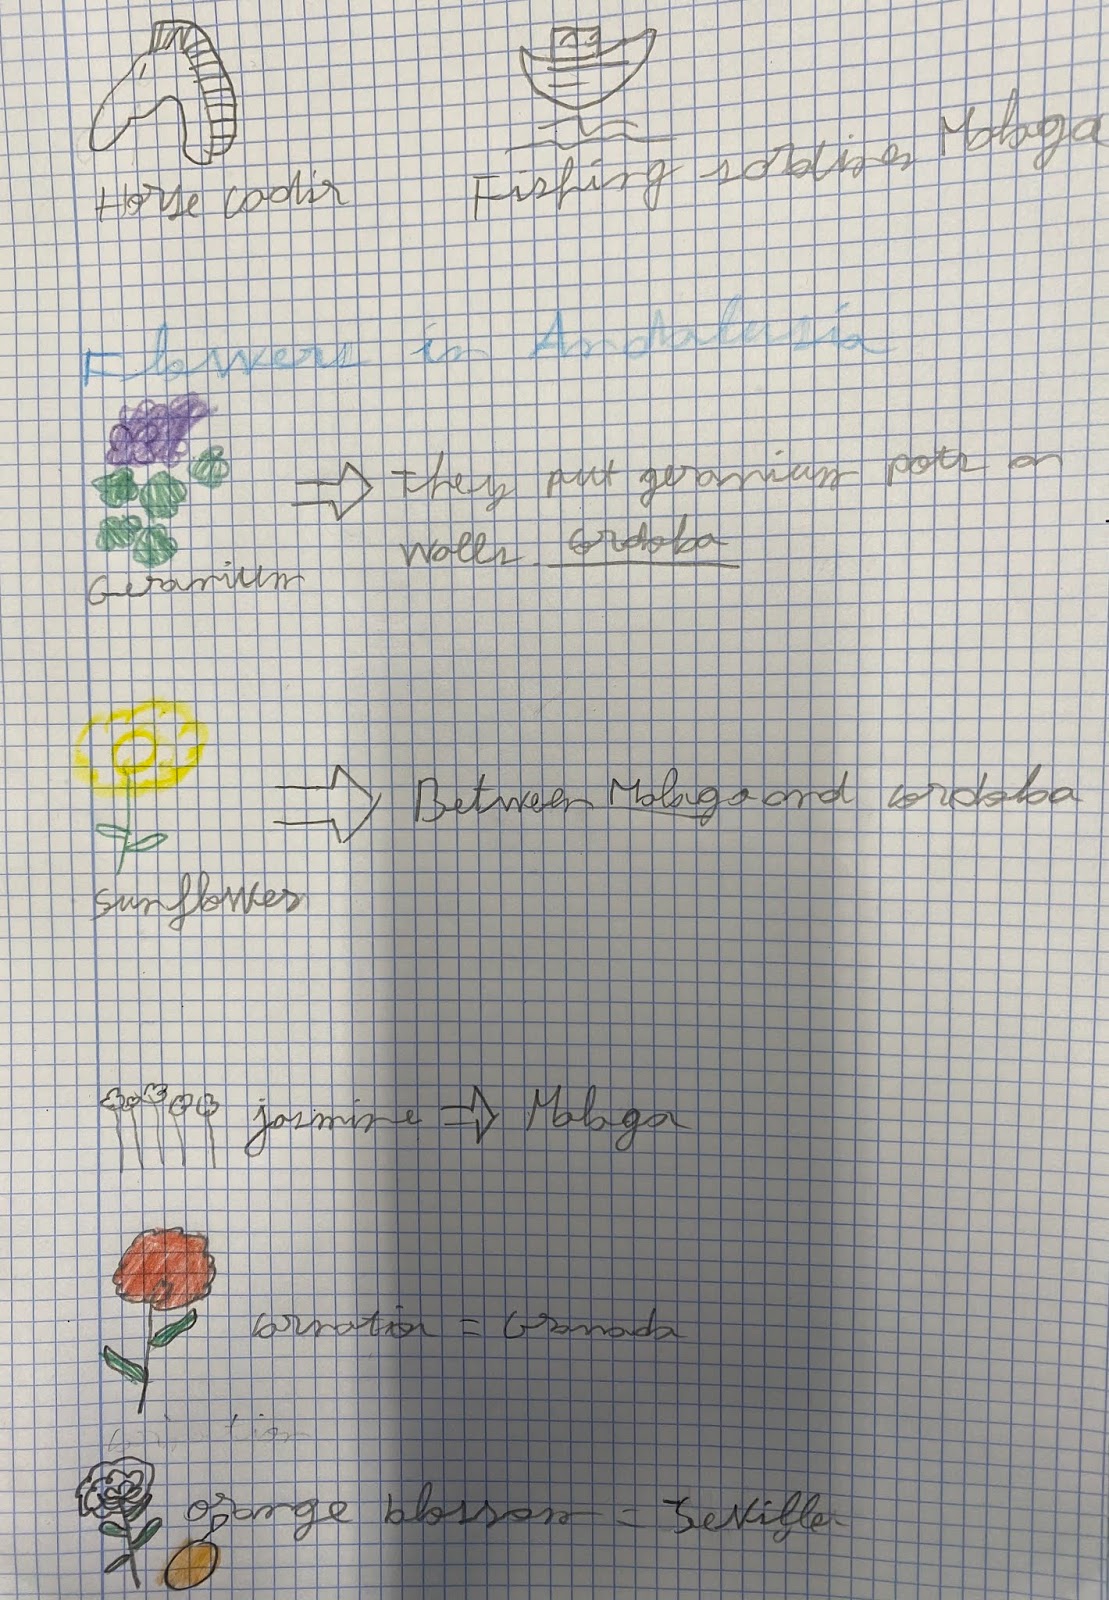 Horse cadir
Fishing sardines Malaga
Flowers in Andalusia
They put geranium pots on
walls cordoba
Geranium
Between Malaga and cordoba
sunflower
jasmine Malaga
carnation = Granada
orange blossom = Seville